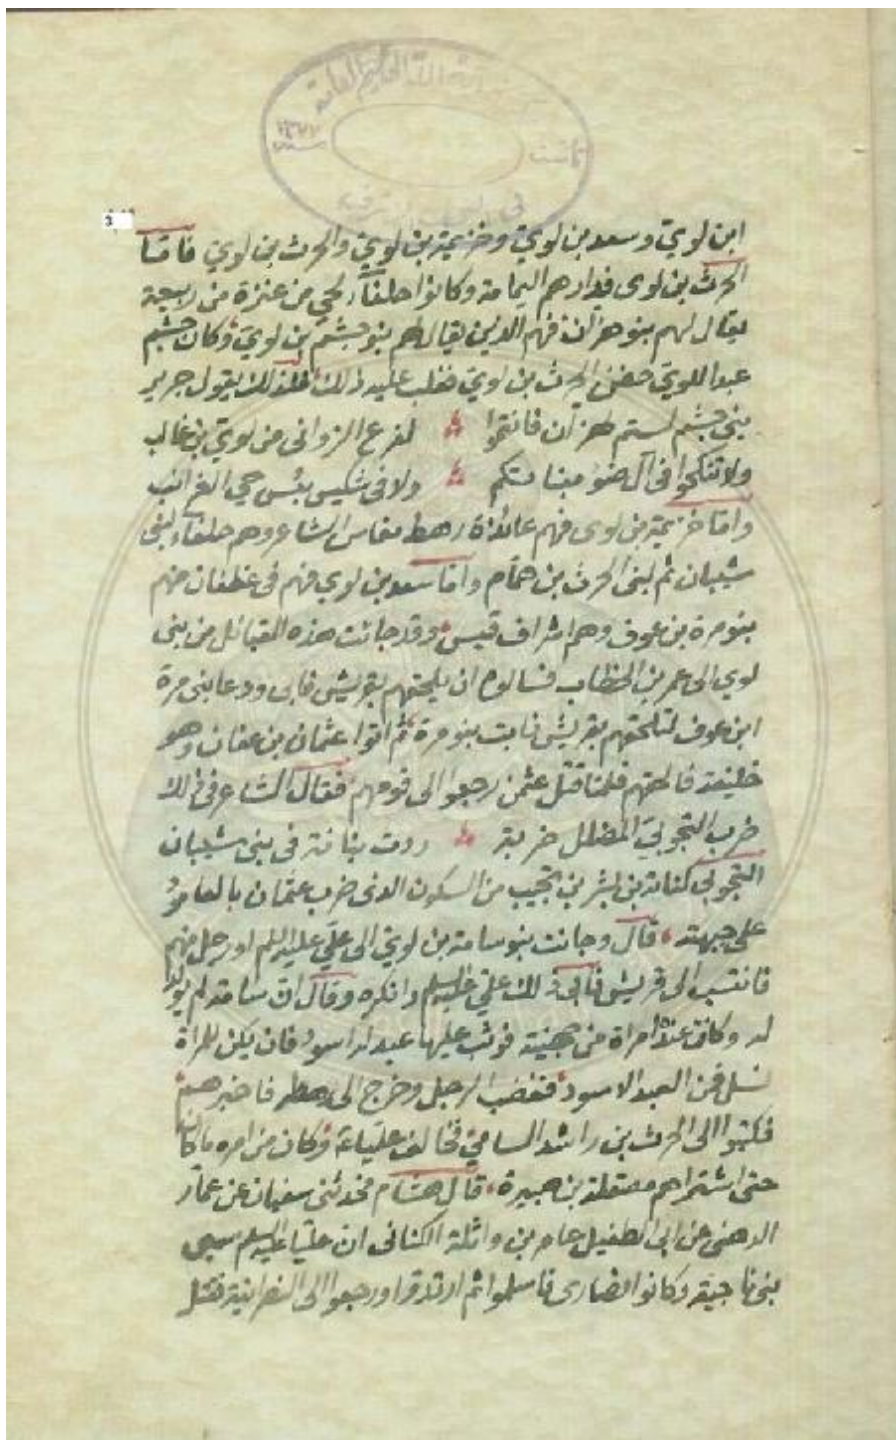 3
ابن لوي وسعد بن لوي وخزيمة بن لوي والحرث بن لوي فاما
الحرث بن لوى فدارهم اليمامة وكانوا حلفاء لحي من عنزة من ربيعة
يقال لهم بنو هزان فهم الذين يقال لهم بنو جشم بن لوي وكان جشم
عبدا للوي حضن الحرث بن لوي فغلب عليه ذلك فلذلك يقول جرير
بنى جشم لستم لهزان فانتموا لفرع الروابى من لوي بن غالب
ولا تنكحوا فى آل ضور بناتكم ولا فى شكيس بئس حي الغرائب
واما خزيمة بن لوى فهم عائذة رهط مقاس الشاعر وهم حلفاء لبنى
شيبان ثم لبنى الحرث بن همام واما سعد بن لوي فهم فى غطفان منهم
بنو مرة بن عوف وهم اشراف قيس وقد جائت هذه القبائل من بنى
لوي الى عمر بن الخطاب فسالوه ان يلحقهم بقريش فابى ودعا بنى مرة
ابن عوف لتلحقهم بقريش فابت بنو مرة ثم اتوا عثمان بن عفان وهو
خليفة فالحقهم فلما قتل عثمن رجعوا الى قومهم فقال الشاعر فى ذلك
ضرب التجوبي المضلل ضربة ردت بنانة فى بنى شيبان
التجوبى كنانة بن بشر بن تجيب من السكون الذى ضرب عثمان بالعامود
على جبهته قال وجائت بنو سامة بن لوي الى علي عليه السلم او رجل منهم
فانتسب الى قريش فابى ذلك علي عليه السلم وانكره وقال ان سامة لم يولد
له وكانت عنده امراة من جهينة فوثب عليها عبد له اسود فان يكن للمراة
نسل فمن العبد الاسود فغضب الرجل وخرج الى رهطه فاخبرهم
فكتبوا الى الحرث بن راشد السامي فخالف علياع وكان من امره ما كان
حتى اشتراهم مصقلة بن هبيرة قال هشام فحدثنى سفيان عن عمار
الدهنى عن ابى الطفيل عامر بن واثلة الكنانى ان عليا عليه السلم سبى
بنى ناجية وكانوا نصارى فاسلموا ثم ارتدوا ورجعوا الى النصرانية فقتل